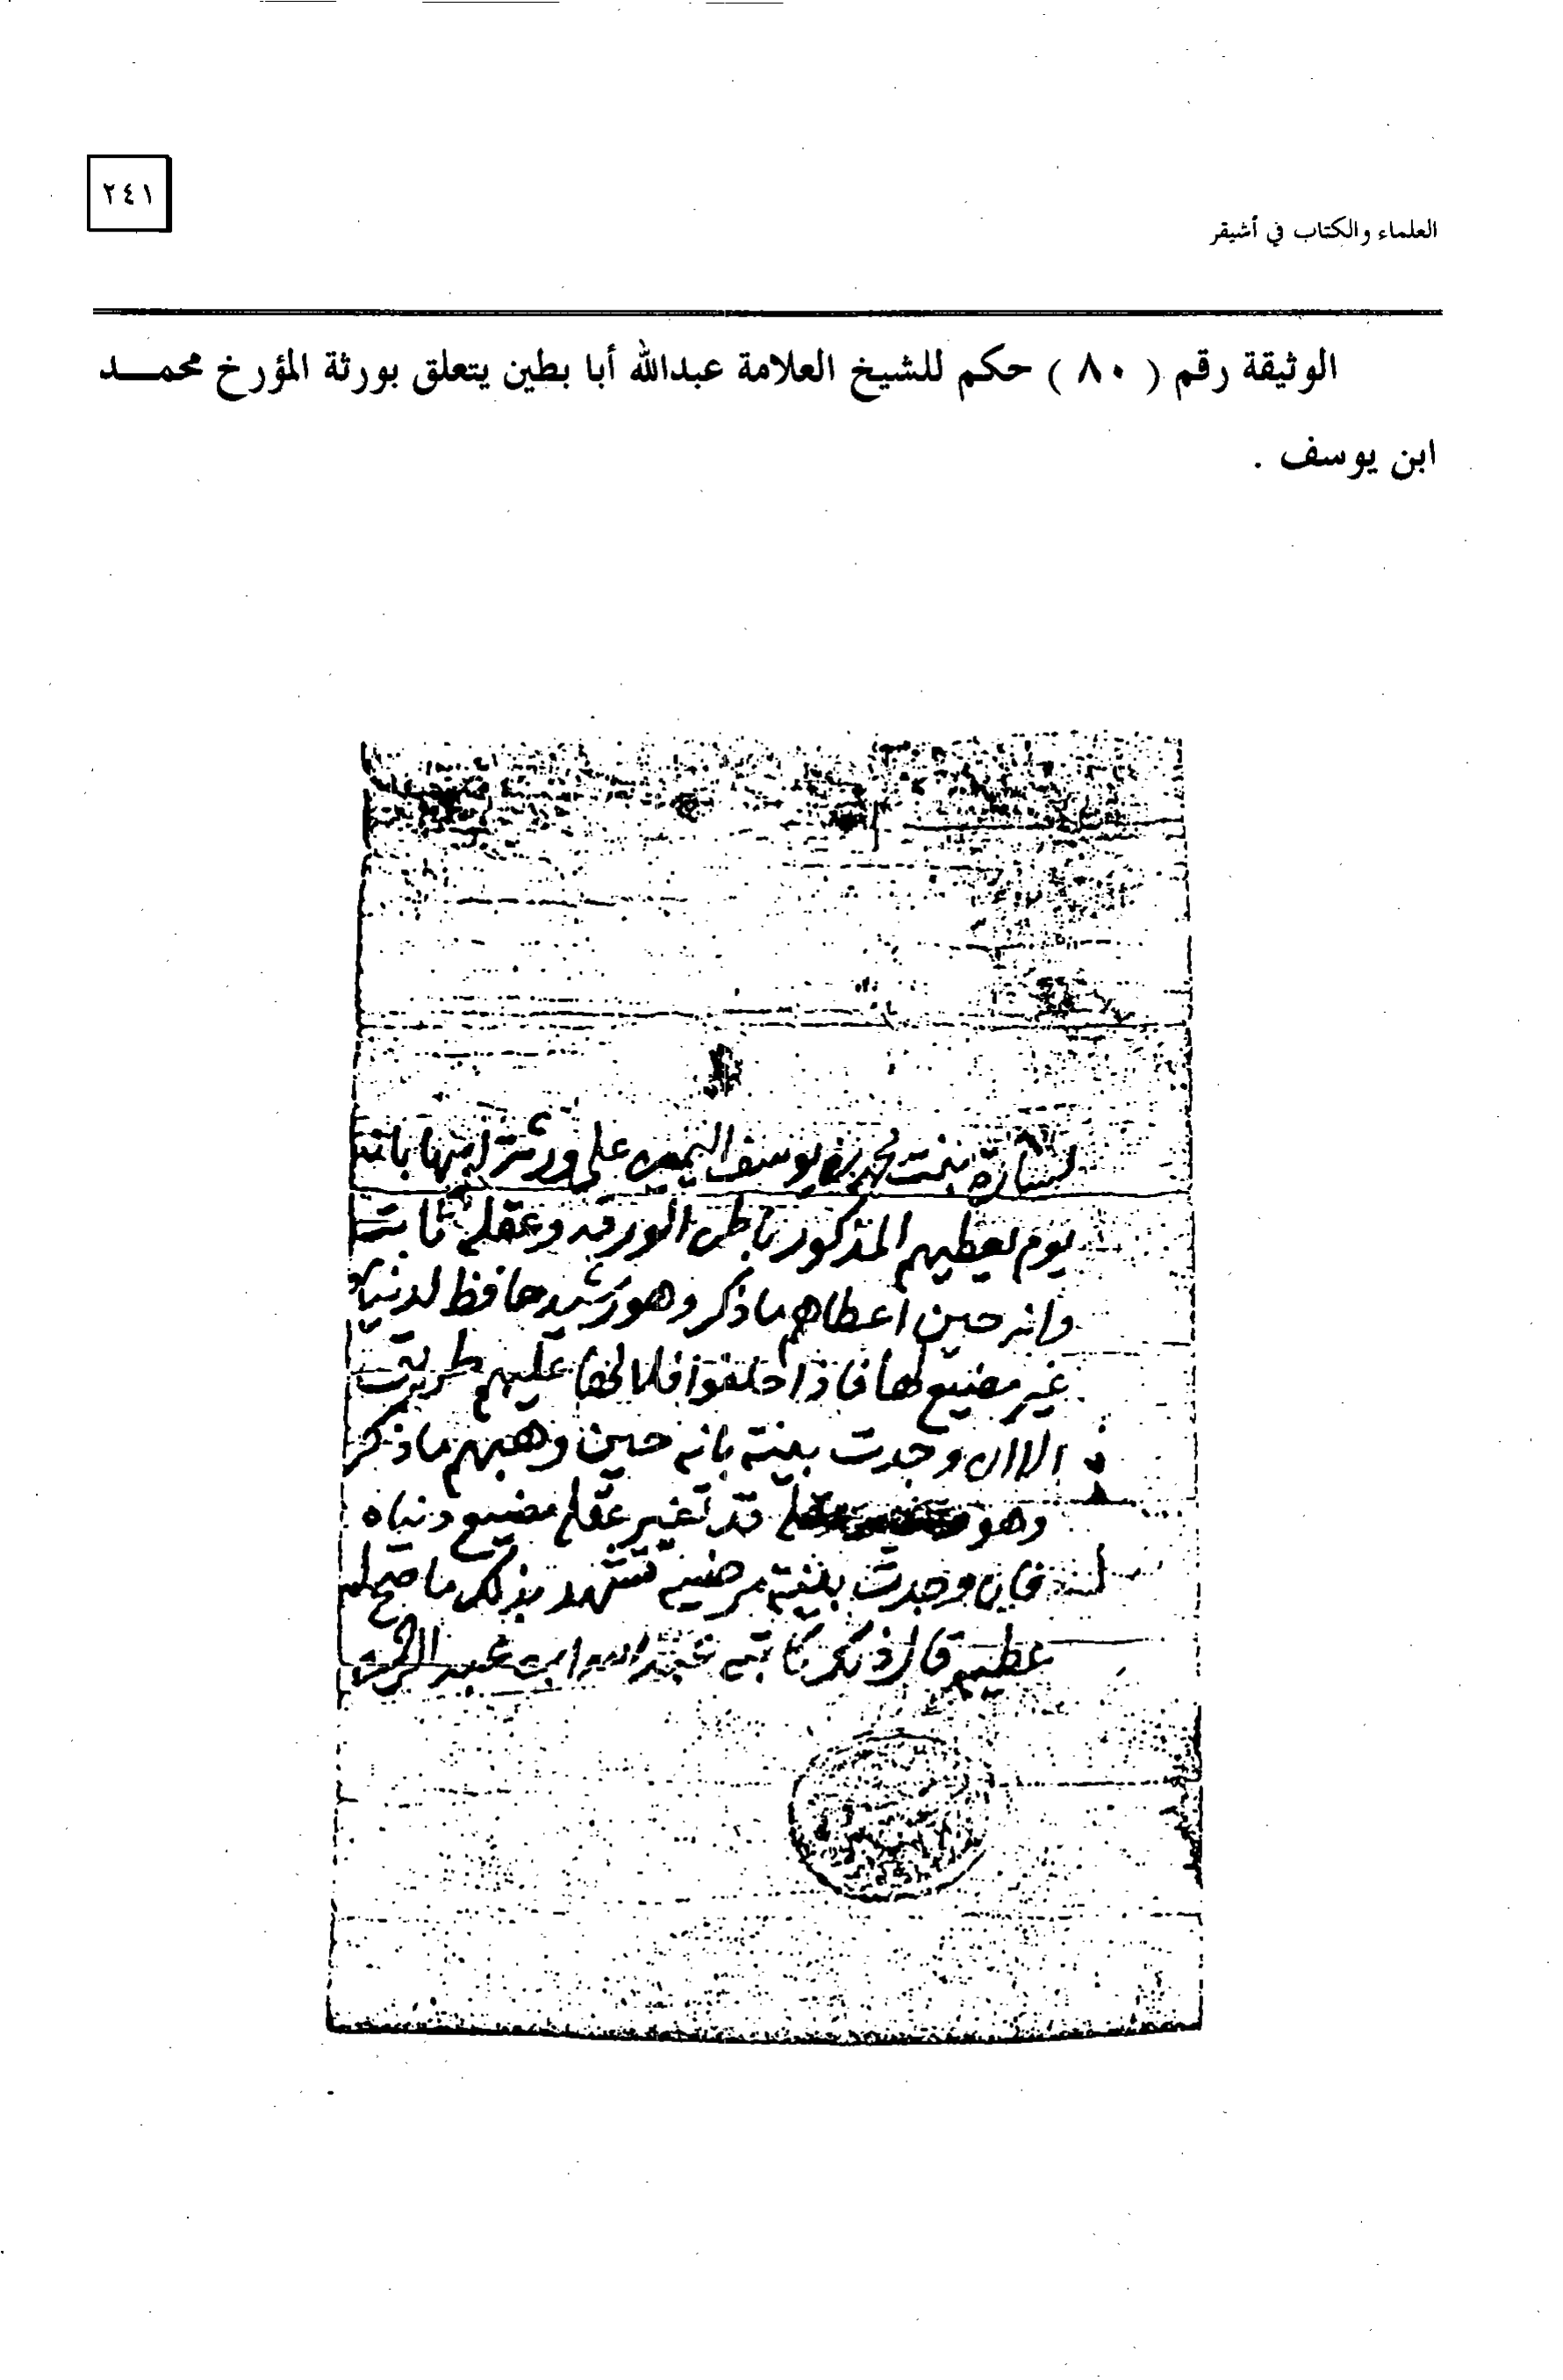 ٢٤١
العلماء والكتاب في أشيقر
الوثيقة رقم ( ٨٠ ) حكم للشيخ العلامة عبدالله أبا بطين يتعلق بورثة المؤرخ محمـــد
ابن يوسف .
لسارة بنت محمد بن يوسف اليمين على ورثة ابنها بانه
يوم يعطيهم المذكور باطن الورقه وعقله ثابت
وانه حين اعطاهم ما ذكر وهو رشيد حافظ لدنياه
غير مضيع لها فاذا حلفوا فلا لها عليهم طريق
الا ان وجدت بينة بانه حين وهبهم ما ذكر
وهو قد تغير عقله مضيع دنياه
فان وجدت بينة مرضيه تشهد بذلك ما صح له
عطيه قال ذلك كاتبه عبد الله ابن عبد الرحمن